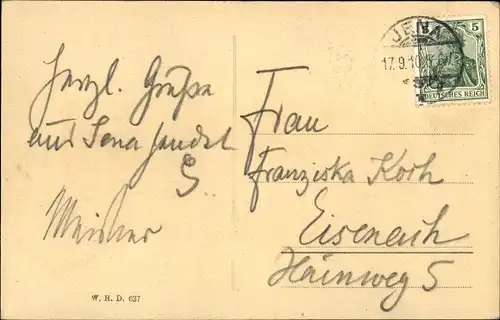 JENA
17.9.10
5
DEUTSCHES REICH
Herzl. Grüße
aus Jena sendet
Frau
Franziska Koch
Eisenach
Hainweg 5
W. H. D. 627